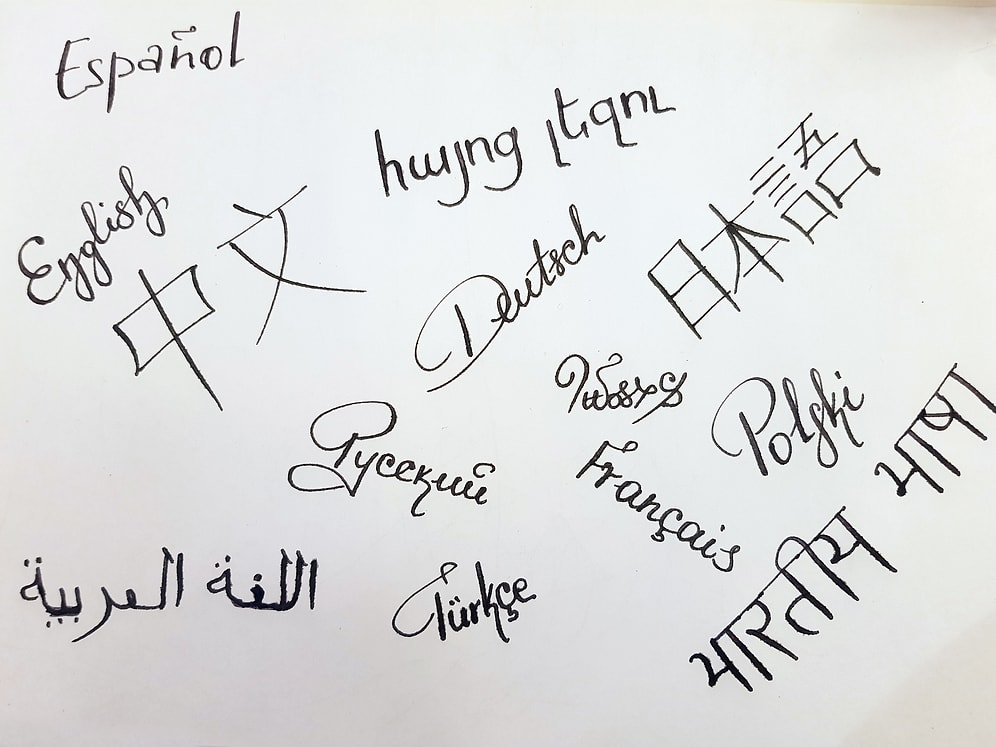 Español
հայոց լեզու
English
中文
日本語
Deutsch
Polski
Русский
Français
भारतीय भाषा
اللغة العربية
Türkçe